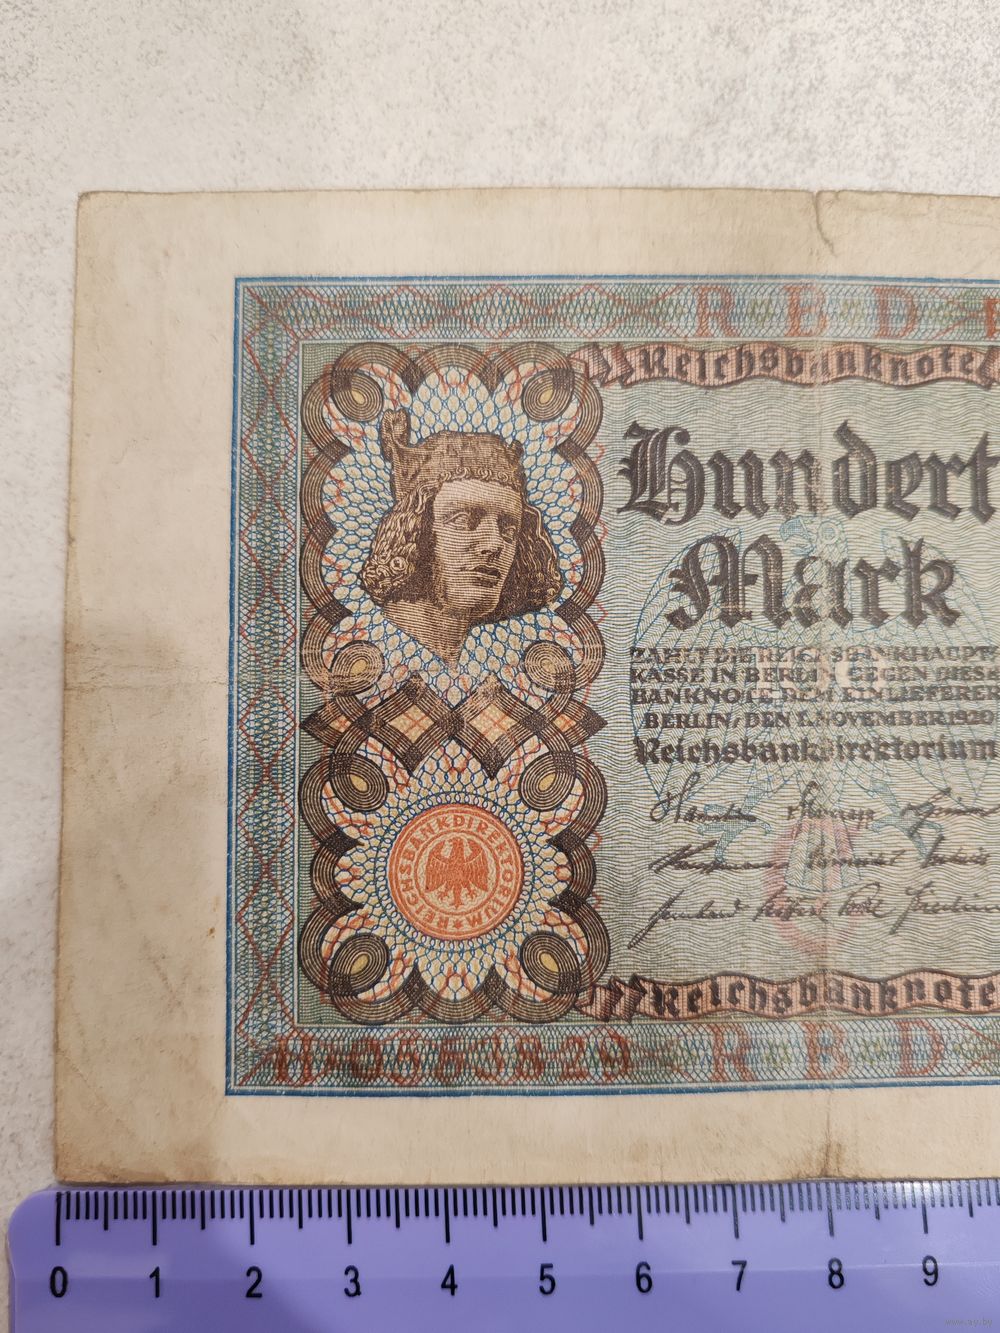 R B D
Reichsbanknote
Hundert
Mark
ZAHLT DIE REICHSBANKHAUPT-
KASSE IN BERLIN GEGEN DIESE
BANKNOTE DEM EINLIEFERER
BERLIN, DEN 1. NOVEMBER 1920
Reichsbankdirektorium
REICHSBANKDIREKTORIUM
Reichsbanknote
R B D
0 1 2 3 4 5 6 7 8 9
www.ay.by